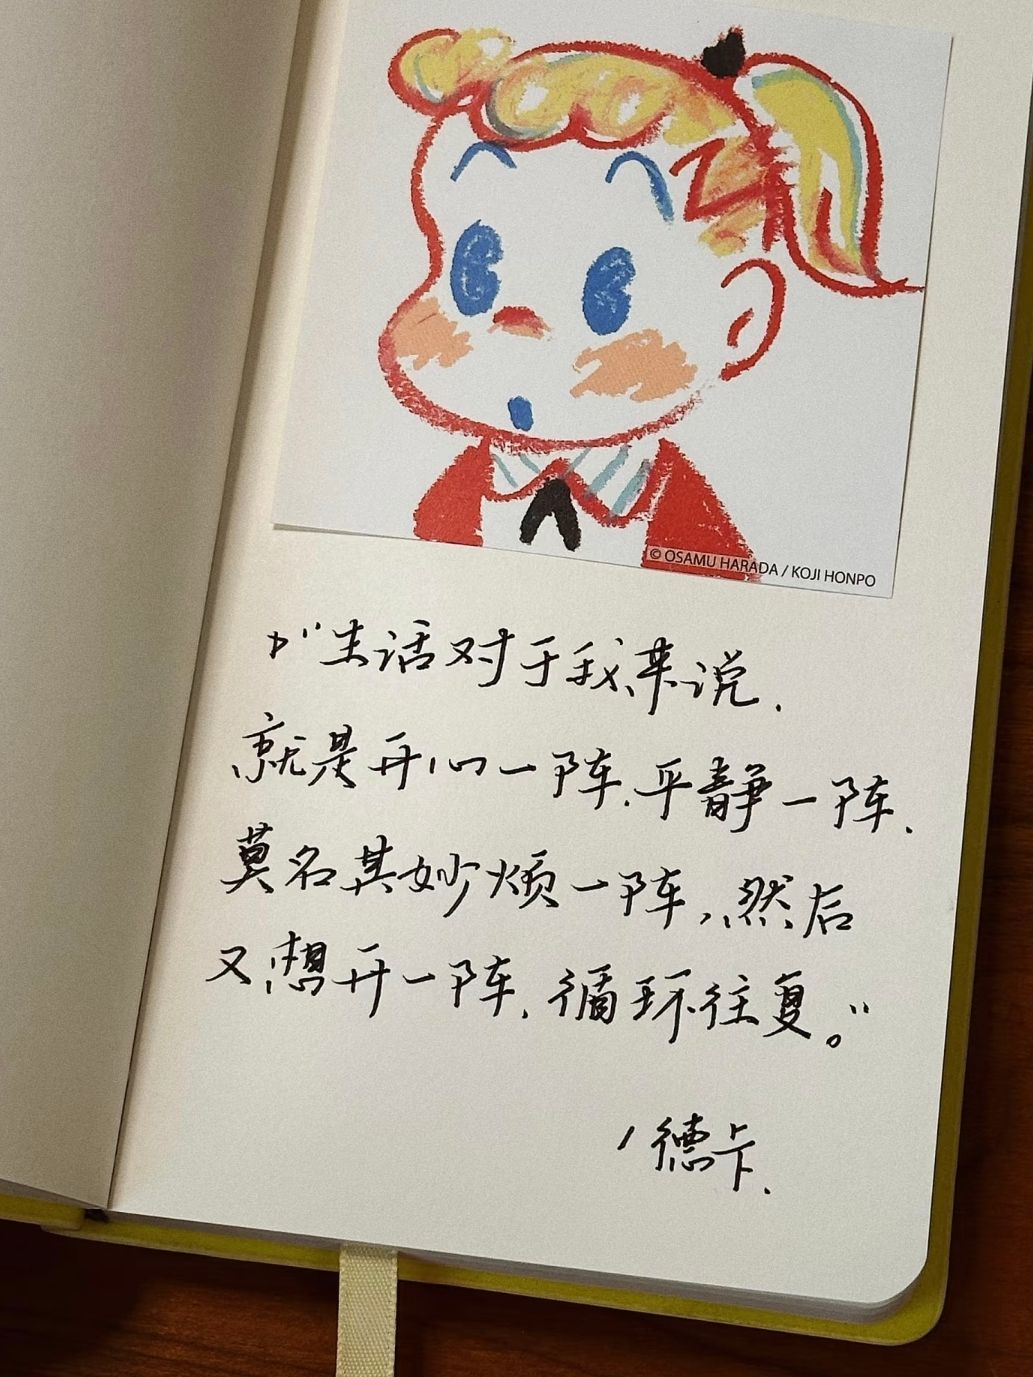 © OSAMU HARADA / KOJI HONPO
“生活对于我来说.
就是开心一阵.平静一阵.
莫名其妙烦一阵,然后
又想开一阵.循环往复。”
/德卡.